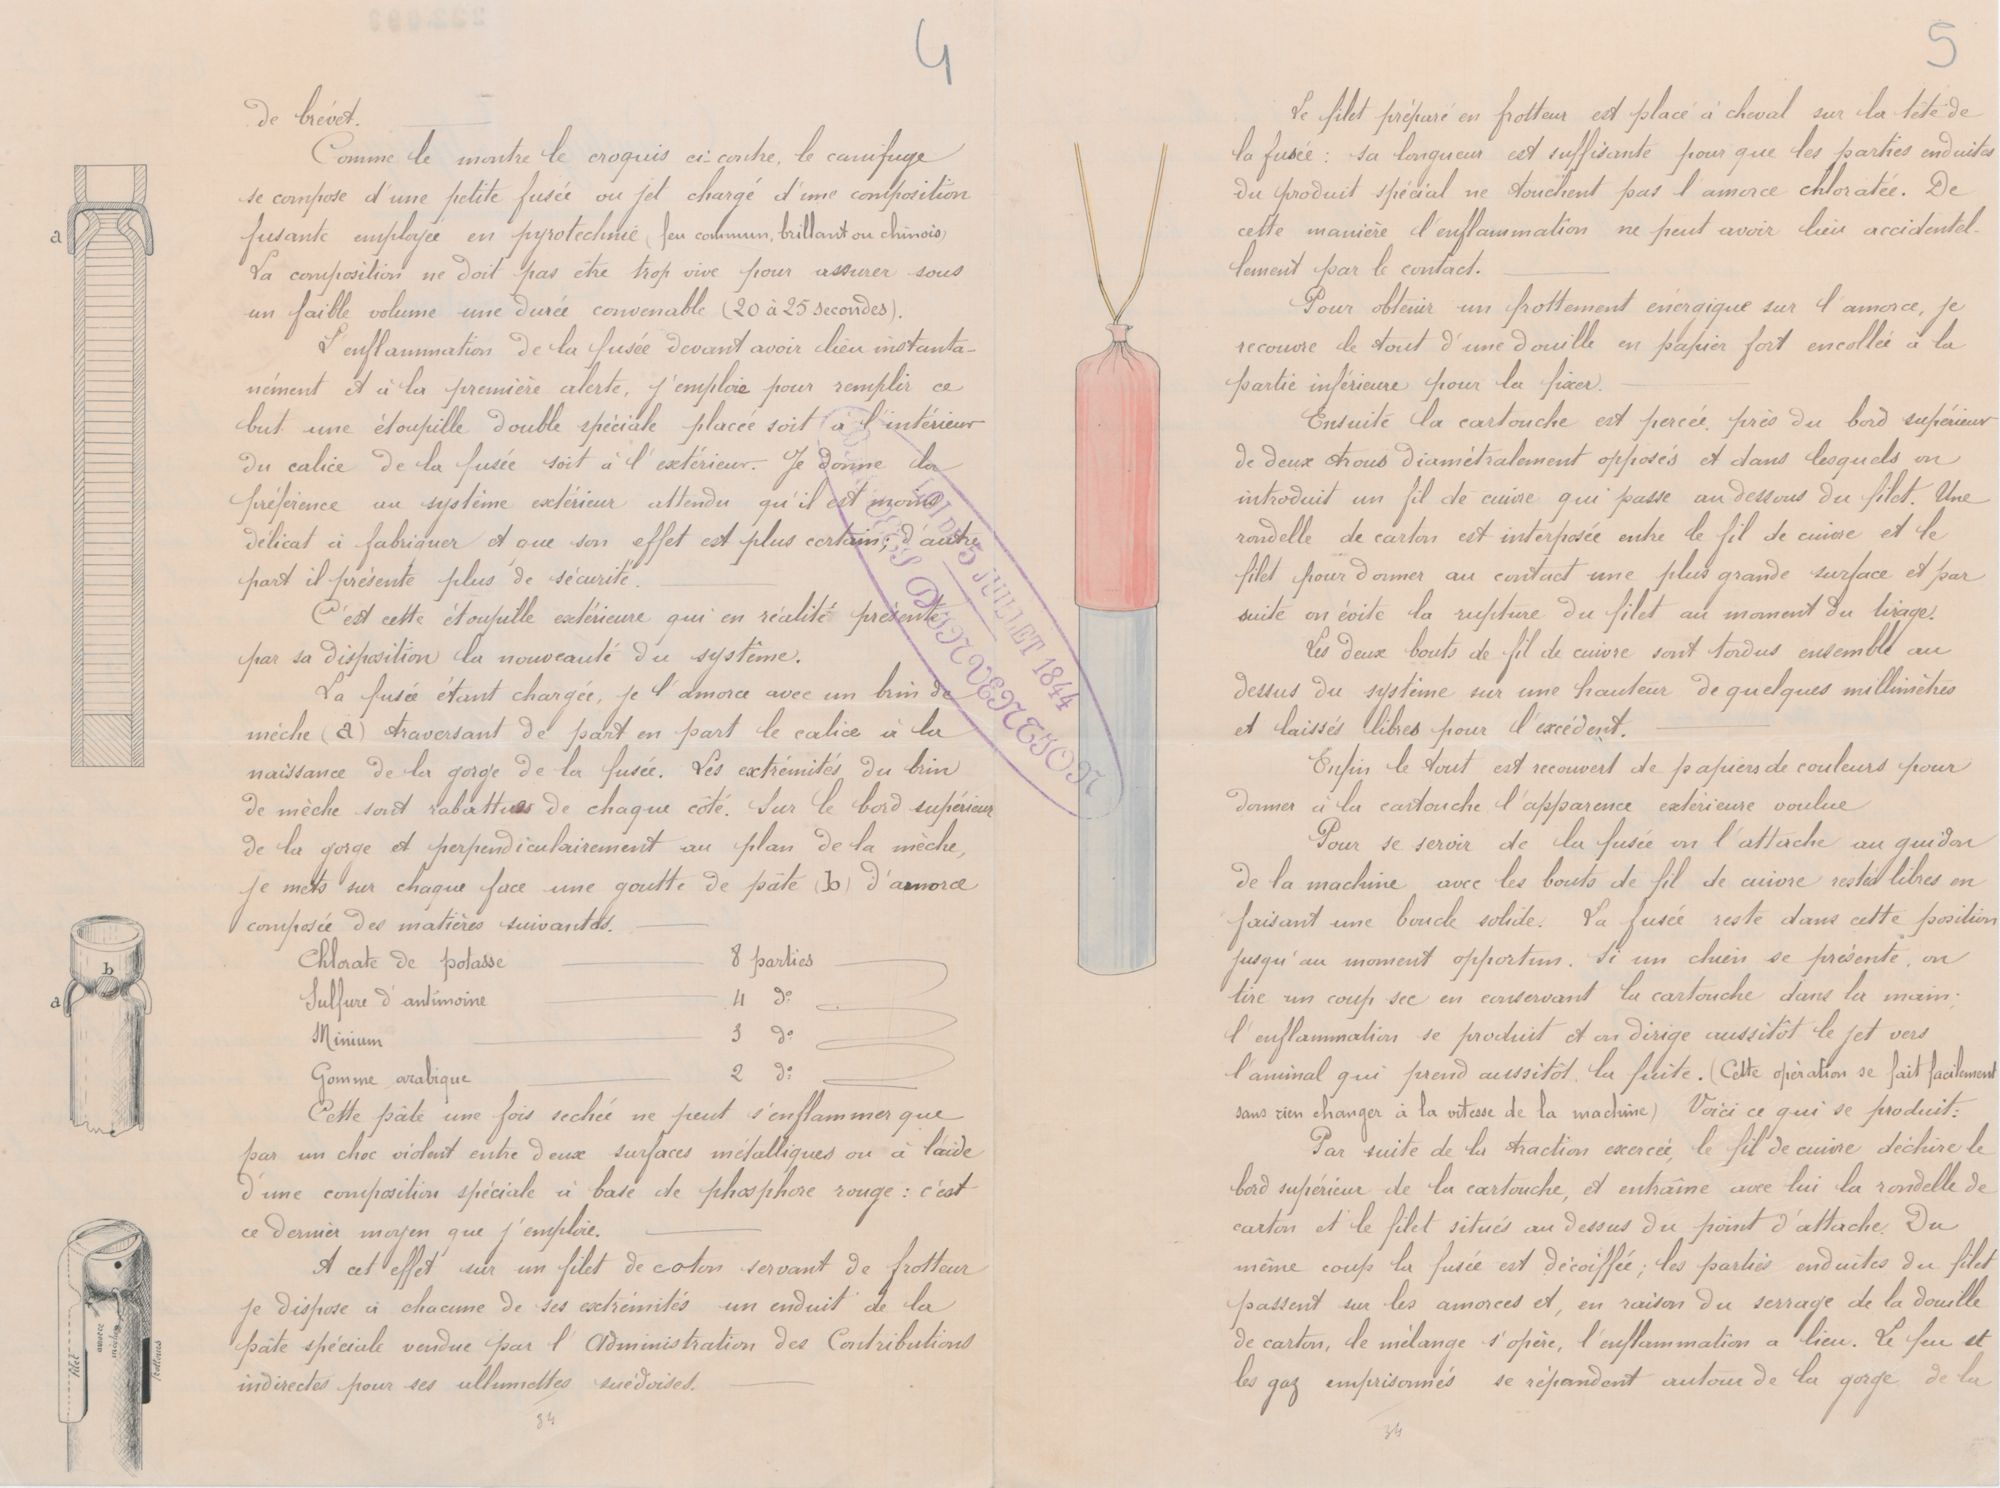 4
de brévet.
Comme le montre le croquis ci-contre, le canifuge
se compose d'une petite fusée ou jet chargé d'une composition
fusante employée en pyrotechnie (feu commun, brillant ou chinois)
La composition ne doit pas être trop vive pour assurer sous
un faible volume une durée convenable (20 à 25 secondes).
L'enflammation de la fusée devant avoir lieu instanta-
nément et à la première alerte, j'emploie pour remplir ce
but une étoupille double spéciale placée soit à l'intérieur
du calice de la fusée soit à l'extérieur. Je donne la
préférence au système extérieur attendu qu'il est moins
délicat à fabriquer et que son effet est plus certain; d'autre
part il présente plus de sécurité.
C'est cette étoupille extérieure qui en réalité présente
par sa disposition la nouveauté du système.
La fusée étant chargée, je l'amorce avec un brin de
mèche (a) traversant de part en part le calice à la
naissance de la gorge de la fusée. Les extrémités du brin
de mèche sont rabattues de chaque côté. Sur le bord supérieur
de la gorge et perpendiculairement au plan de la mèche,
je mets sur chaque face une goutte de pâte (b) d'amorce
composée des matières suivantes.
Chlorate de potasse 8 parties
Sulfure d'antimoine 4 do
Minium 3 do
Gomme arabique 2 do
Cette pâte une fois sechée ne peut s'enflammer que
par un choc violent entre deux surfaces métalliques ou à l'aide
d'une composition spéciale à base de phosphore rouge : c'est
ce dernier moyen que j'emploie.
A cet effet sur un filet de coton servant de frotteur
je dispose à chacune de ses extrémités un enduit de la
pâte spéciale vendue par l'Administration des Contributions
indirectes pour ses allumettes suédoises.
34
a
b
a
filet
amorce
mèche
frotteurs
LOI DU 5 JUILLET 1844
D'INVENTION
5
Le filet préparé en frotteur est placé à cheval sur la tête de
la fusée : sa longueur est suffisante pour que les parties enduites
du produit spécial ne touchent pas l'amorce chloratée. De
cette manière l'enflammation ne peut avoir lieu accidentel-
lement par le contact.
Pour obtenir un frottement énergique sur l'amorce, je
recouvre le tout d'une douille en papier fort encollée à la
partie inférieure pour la fixer.
Ensuite la cartouche est percée près du bord supérieur
de deux trous diamétralement opposés et dans lesquels on
introduit un fil de cuivre qui passe au dessous du filet. Une
rondelle de carton est interposée entre le fil de cuivre et le
filet pour donner au contact une plus grande surface et par
suite on évite la rupture du filet au moment du tirage.
Les deux bouts de fil de cuivre sont tordus ensemble au
dessus du système sur une hauteur de quelques millimètres
et laissés libres pour l'excédent.
Enfin le tout est recouvert de papiers de couleurs pour
donner à la cartouche l'apparence extérieure voulue
Pour se servir de la fusée on l'attache au guidon
de la machine avec les bouts de fil de cuivre restés libres en
faisant une boucle solide. La fusée reste dans cette position
jusqu'au moment opportun. Si un chien se présente, on
tire un coup sec en conservant la cartouche dans la main;
l'enflammation se produit et on dirige aussitôt le jet vers
l'aminal qui prend aussitôt la fuite. (Cette opération se fait facilement
sans rien changer à la vitesse de la machine) Voici ce qui se produit:
Par suite de la traction exercée, le fil de cuivre déchire le
bord supérieur de la cartouche, et entraîne avec lui la rondelle de
carton et le filet situés au dessus du point d'attache. Du
même coup la fusée est décoiffée; les parties enduites du filet
passent sur les amorces et, en raison du serrage de la douille
de carton, le mélange s'opère, l'enflammation a lieu. Le feu et
les gaz emprisonnés se répandent autour de la gorge de la
34